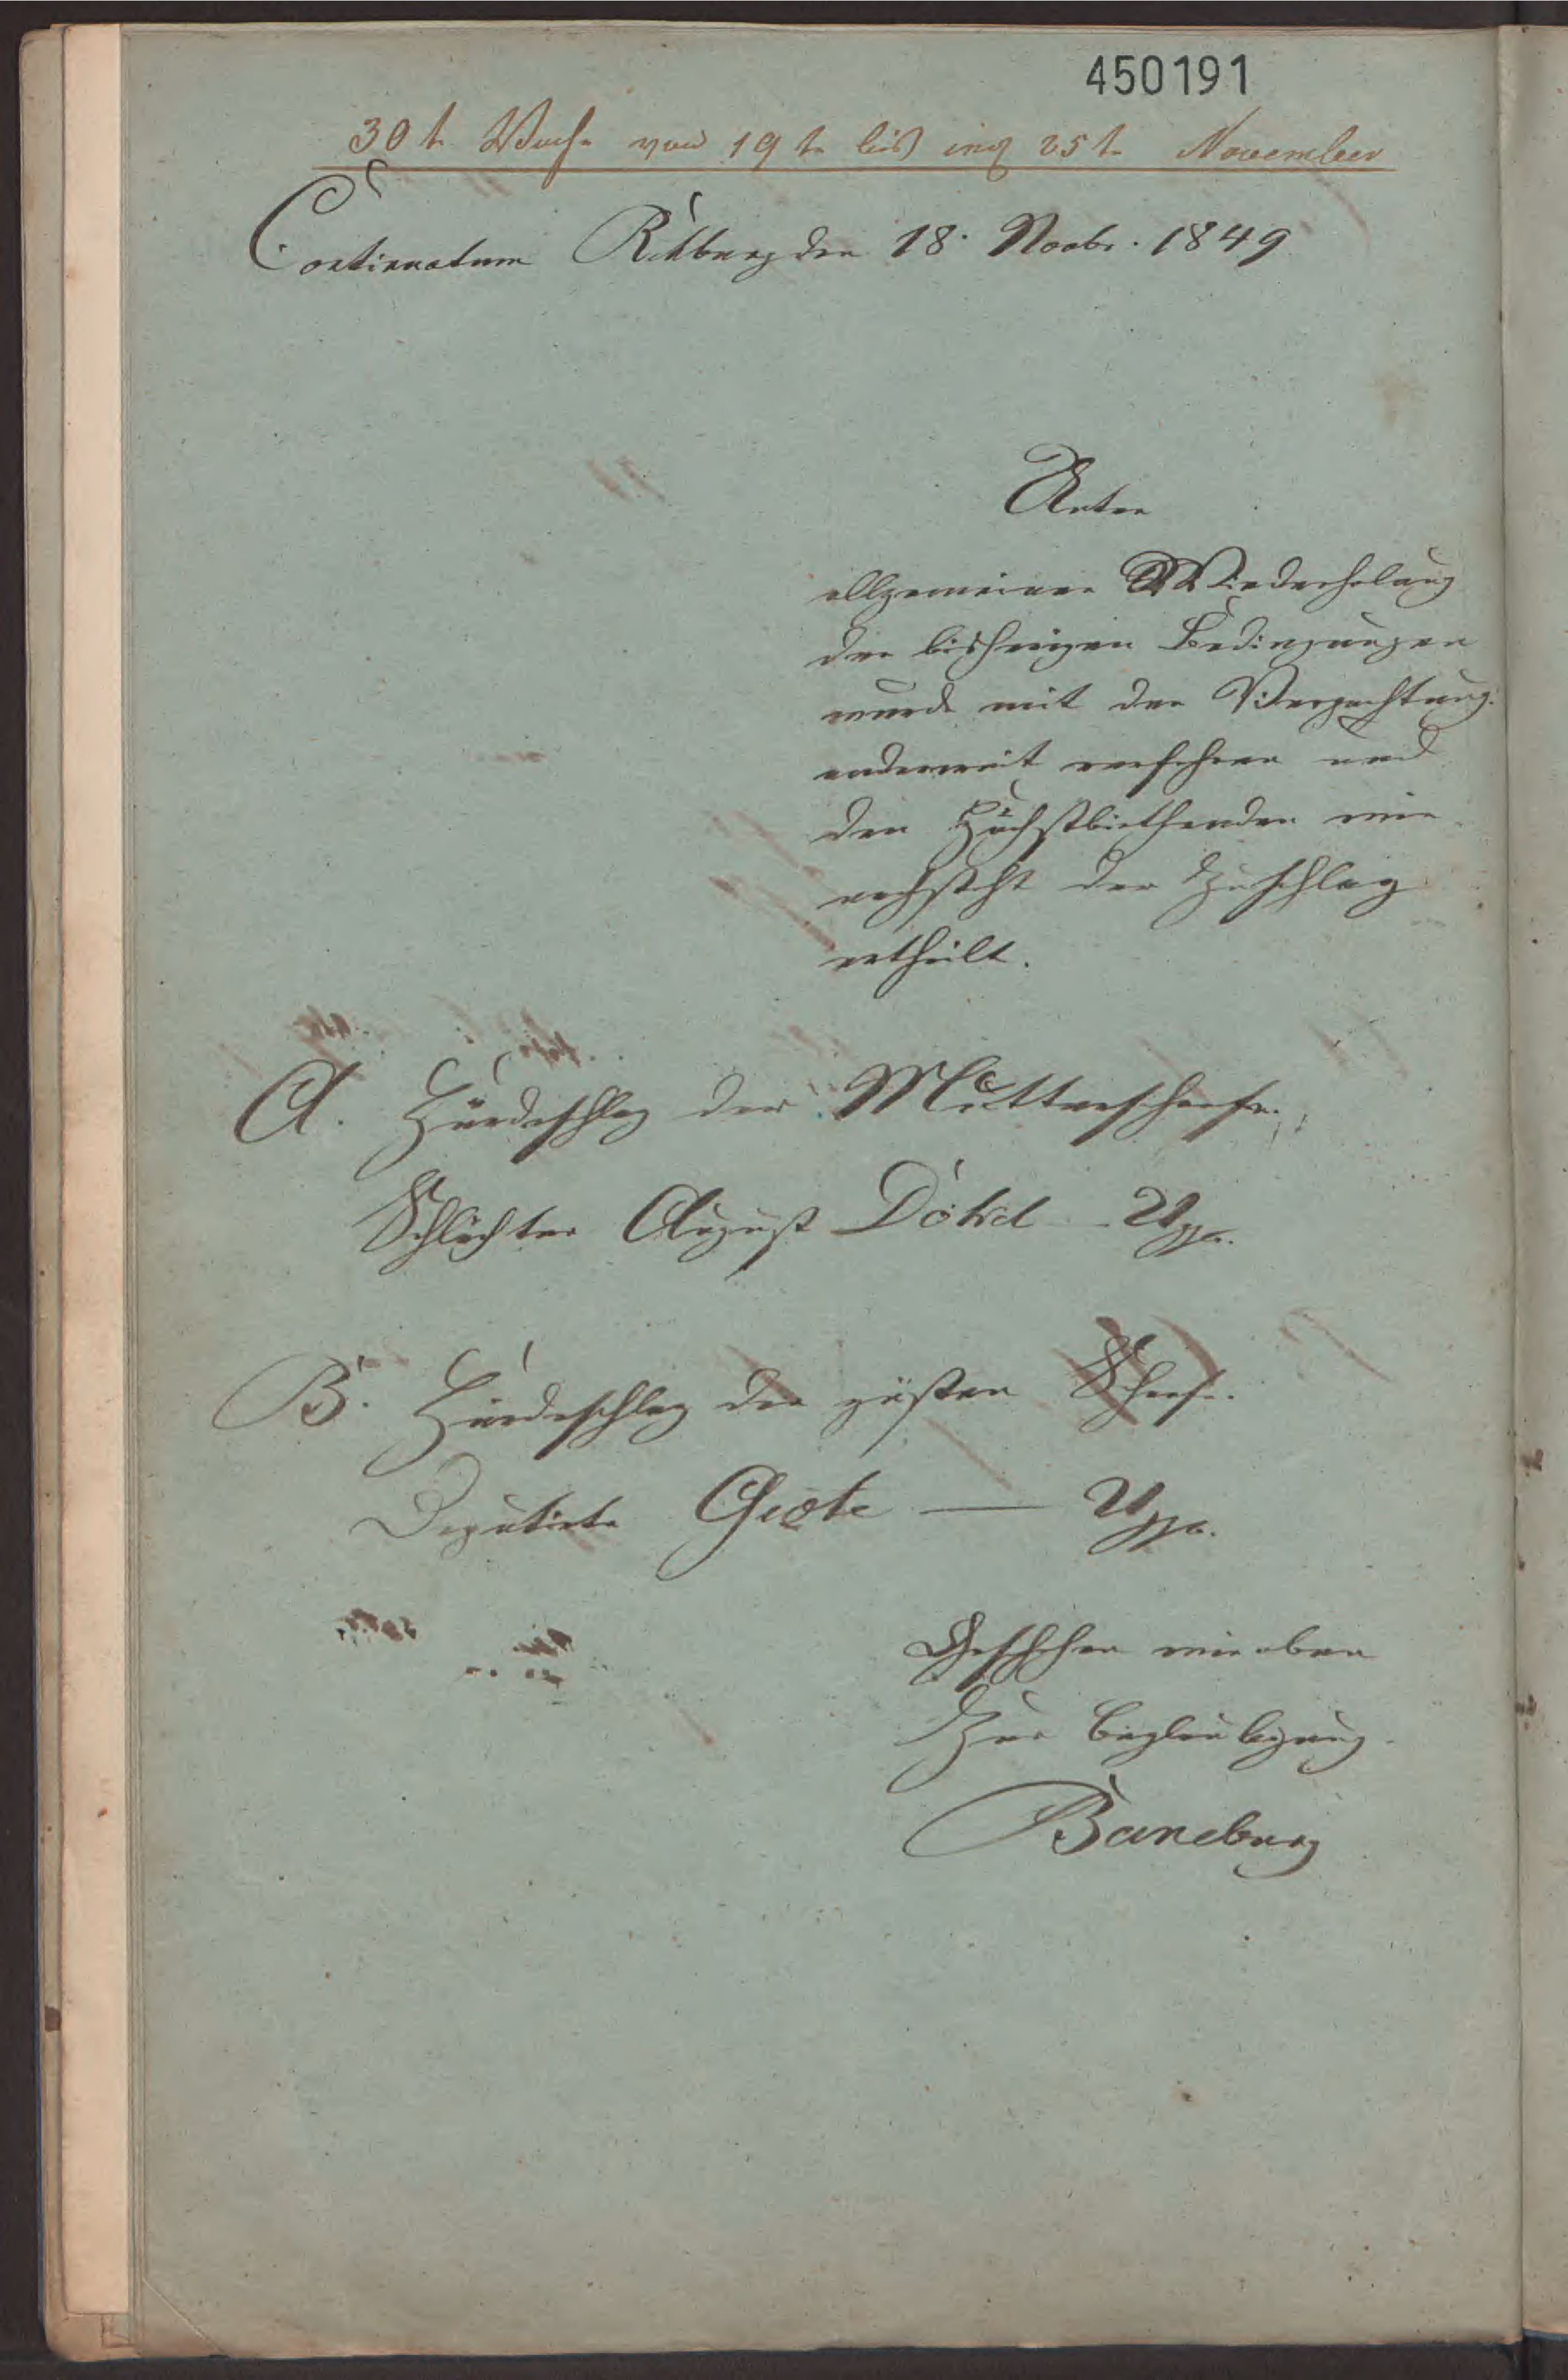 450191
30te Woche vom 19te bis incl 25te November
Continuatum Rethburg den 18. Novbr. 1849
Unter
allgemeiner Wiederholung
der bisherigen Bedingungen
wurde mit der Verpachtung
anderweit verfahren und
den Höchstbiethenden wie
nachsteht der Zuschlag
ertheilt.
A. Hürdeschlag der Mutterschafe.
Schlachter August Dökel
B. Hürdeschlag der güsten Schafe.
Deputirte —
Geschehen wie oben
Zur Beglaubigung
Baneburg